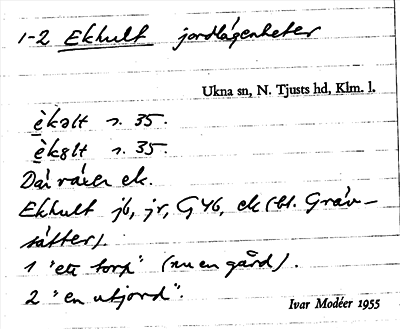 1-2 Ekhult jordlägenheter
Ukna sn, N. Tjusts hd, Klm. l.
èkəlt s. 35.
èkɞlt s. 35.
Där växer ek.
Ekhult jb, jr, G46, ek (bl. Gräv-
sätter).
1 "ett torp" (nu en gård).
2 "en utjord".
Ivar Modéer 1955